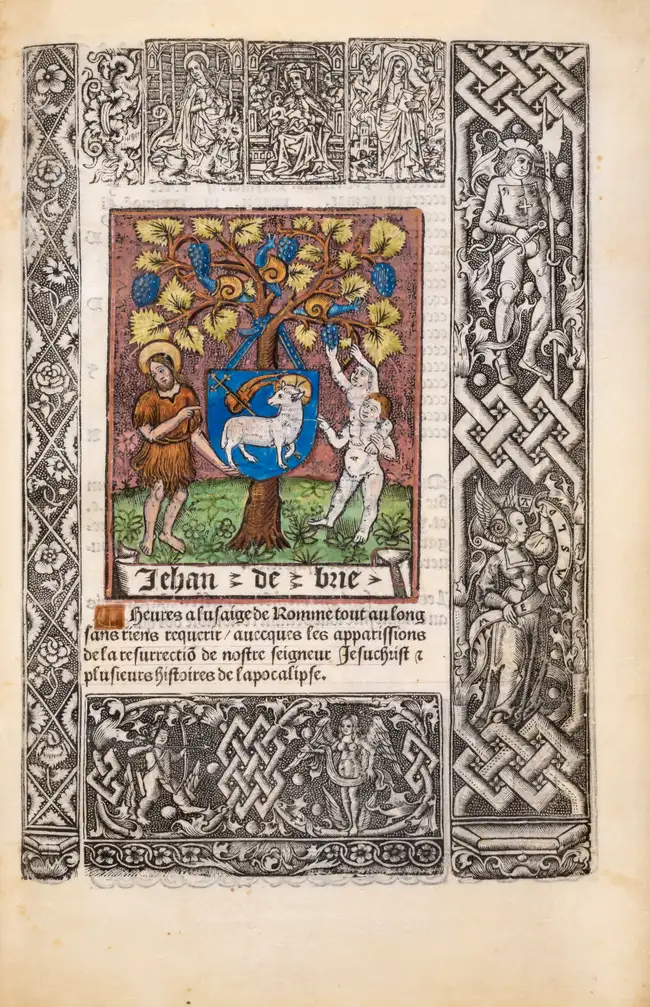 Jehan de brie
Heures a lusaige de Romme tout au long
sans riens requerir / auecques les apparissions
de la resurrectiõ de nostre seigneur Jesuchrist ⁊
plusieurs histoires de lapocalipse.